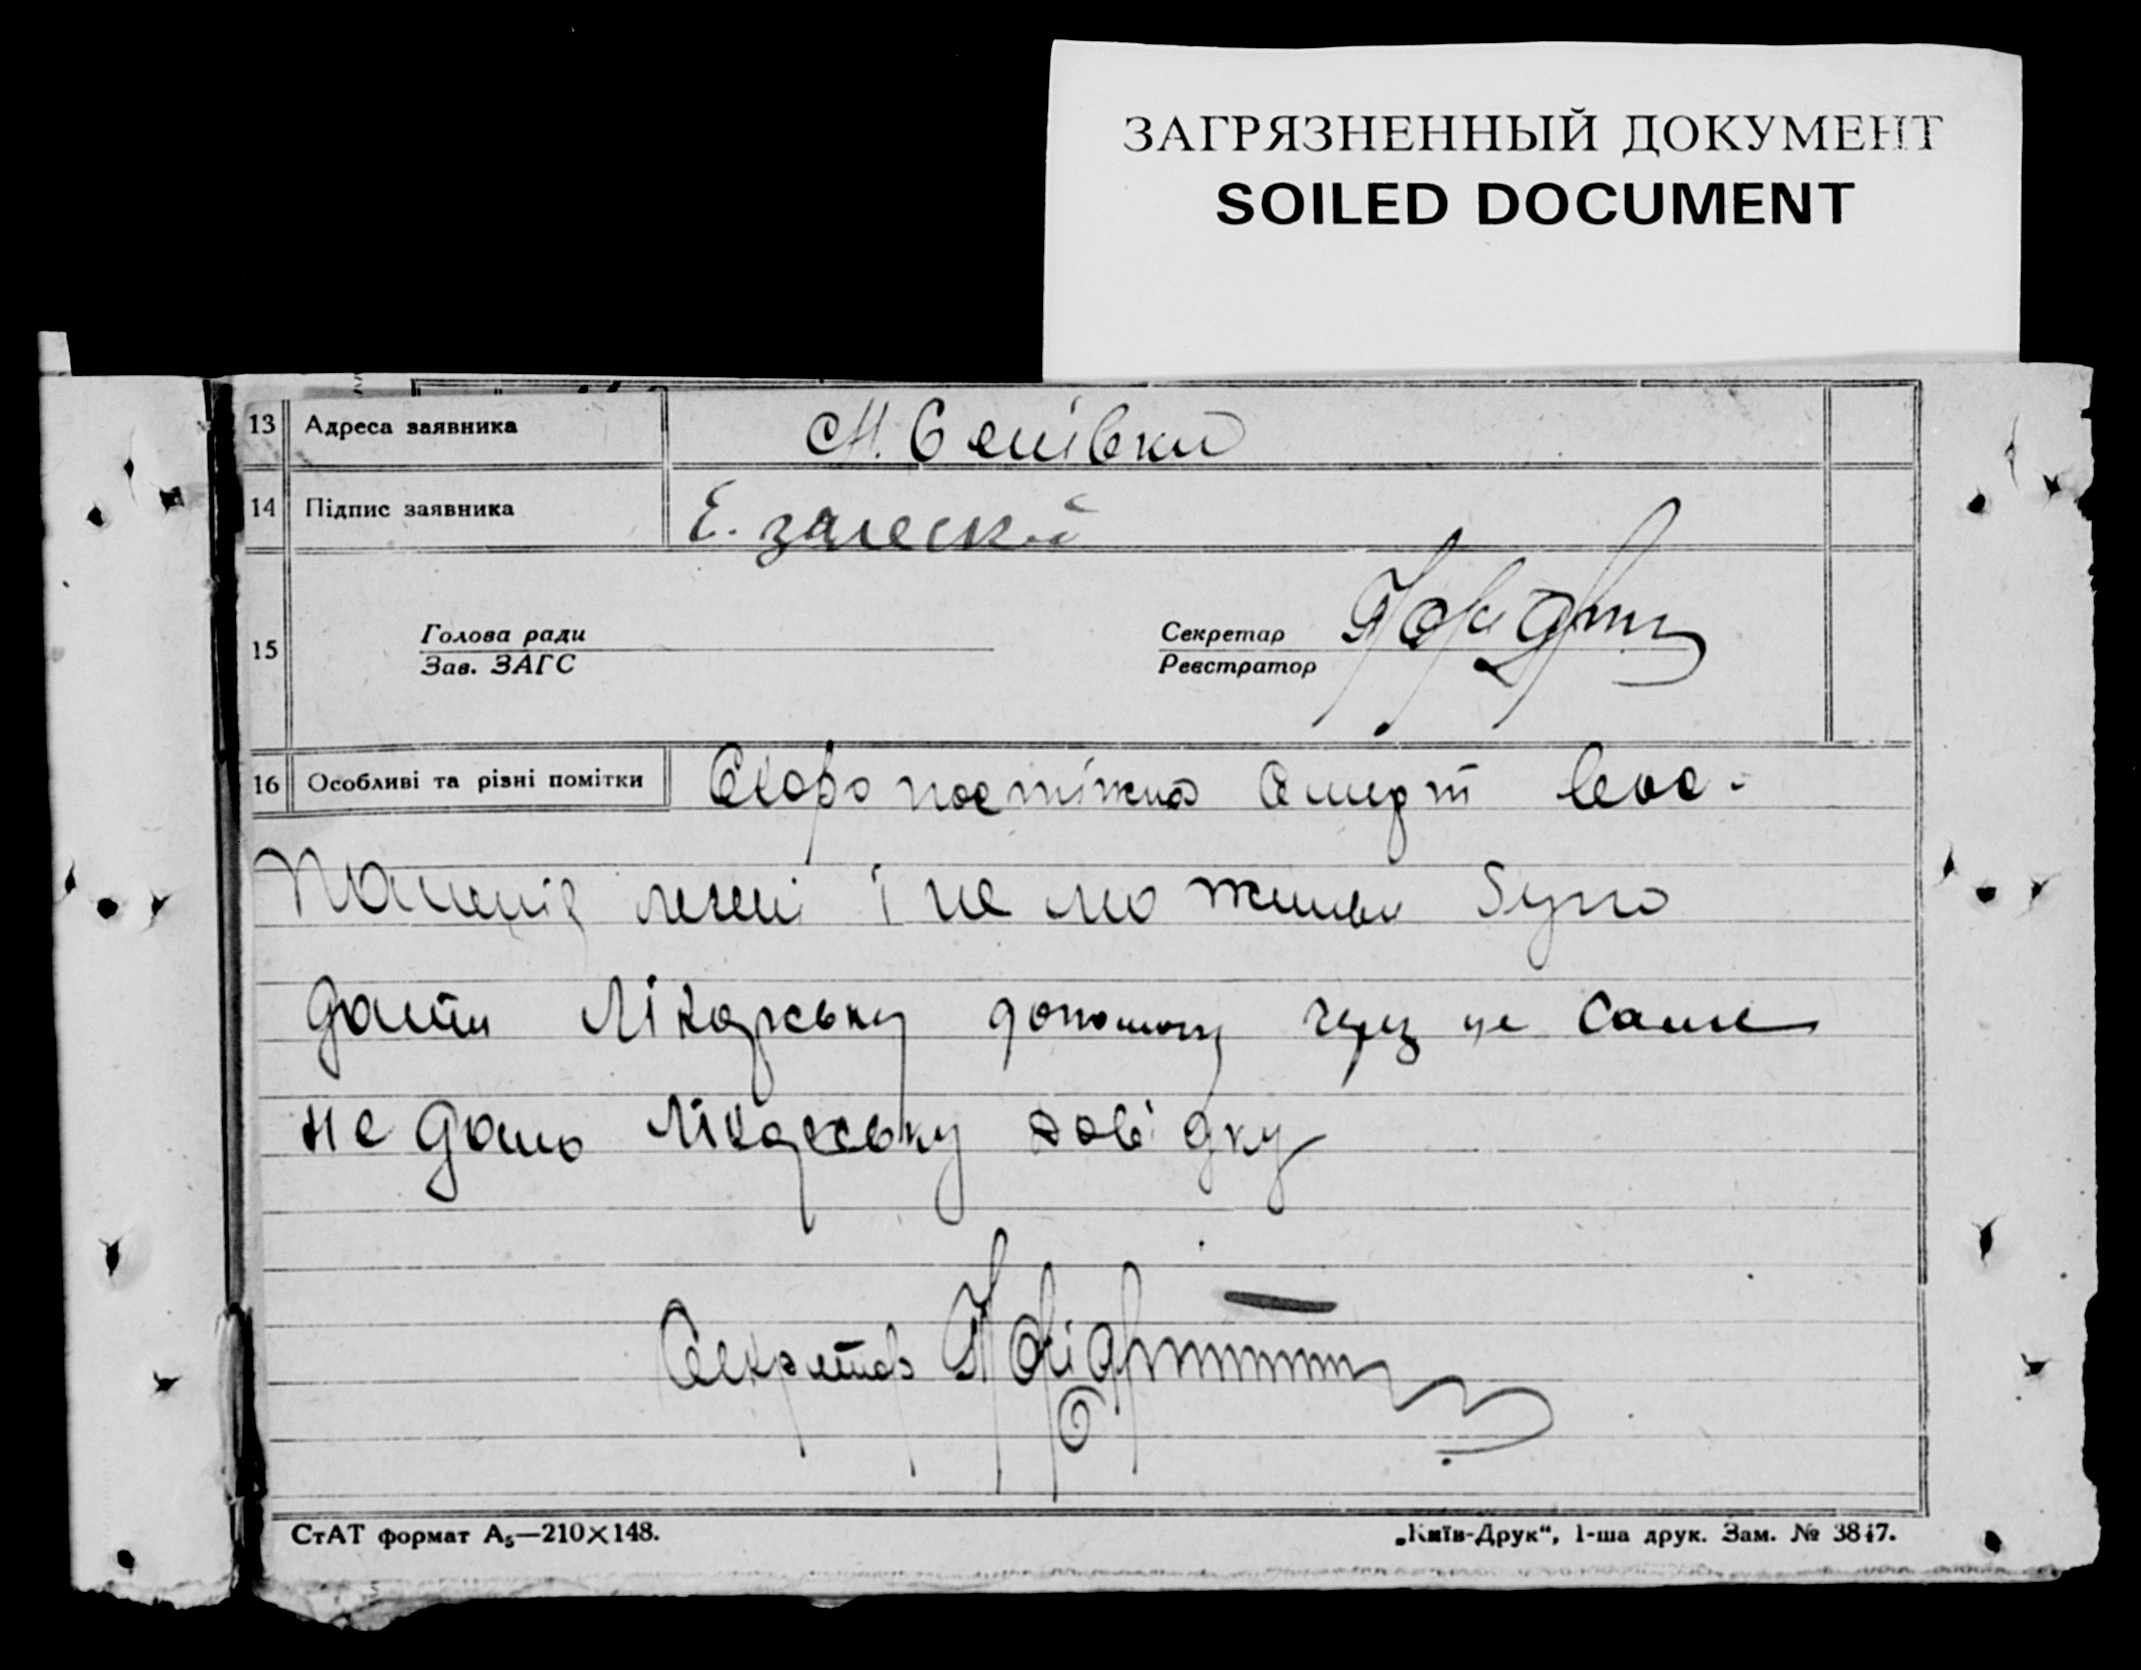 ЗАГРЯЗНЕННЫЙ ДОКУМЕНТ
SOILED DOCUMENT
13 Адреса заявника
14 Підпис заявника Е.
15 Голова ради Секретар
Зав. ЗАГС Реєстратор
16 Особливі та різні помітки Скоропостіжна смерт
легені і не можливо було
дати лікарську допомогу через це саме
не дано лікарську довідку
Секретар
СтАТ формат А₅—210×148. „Київ-Друк“, 1-ша друк. Зам. № 3847.